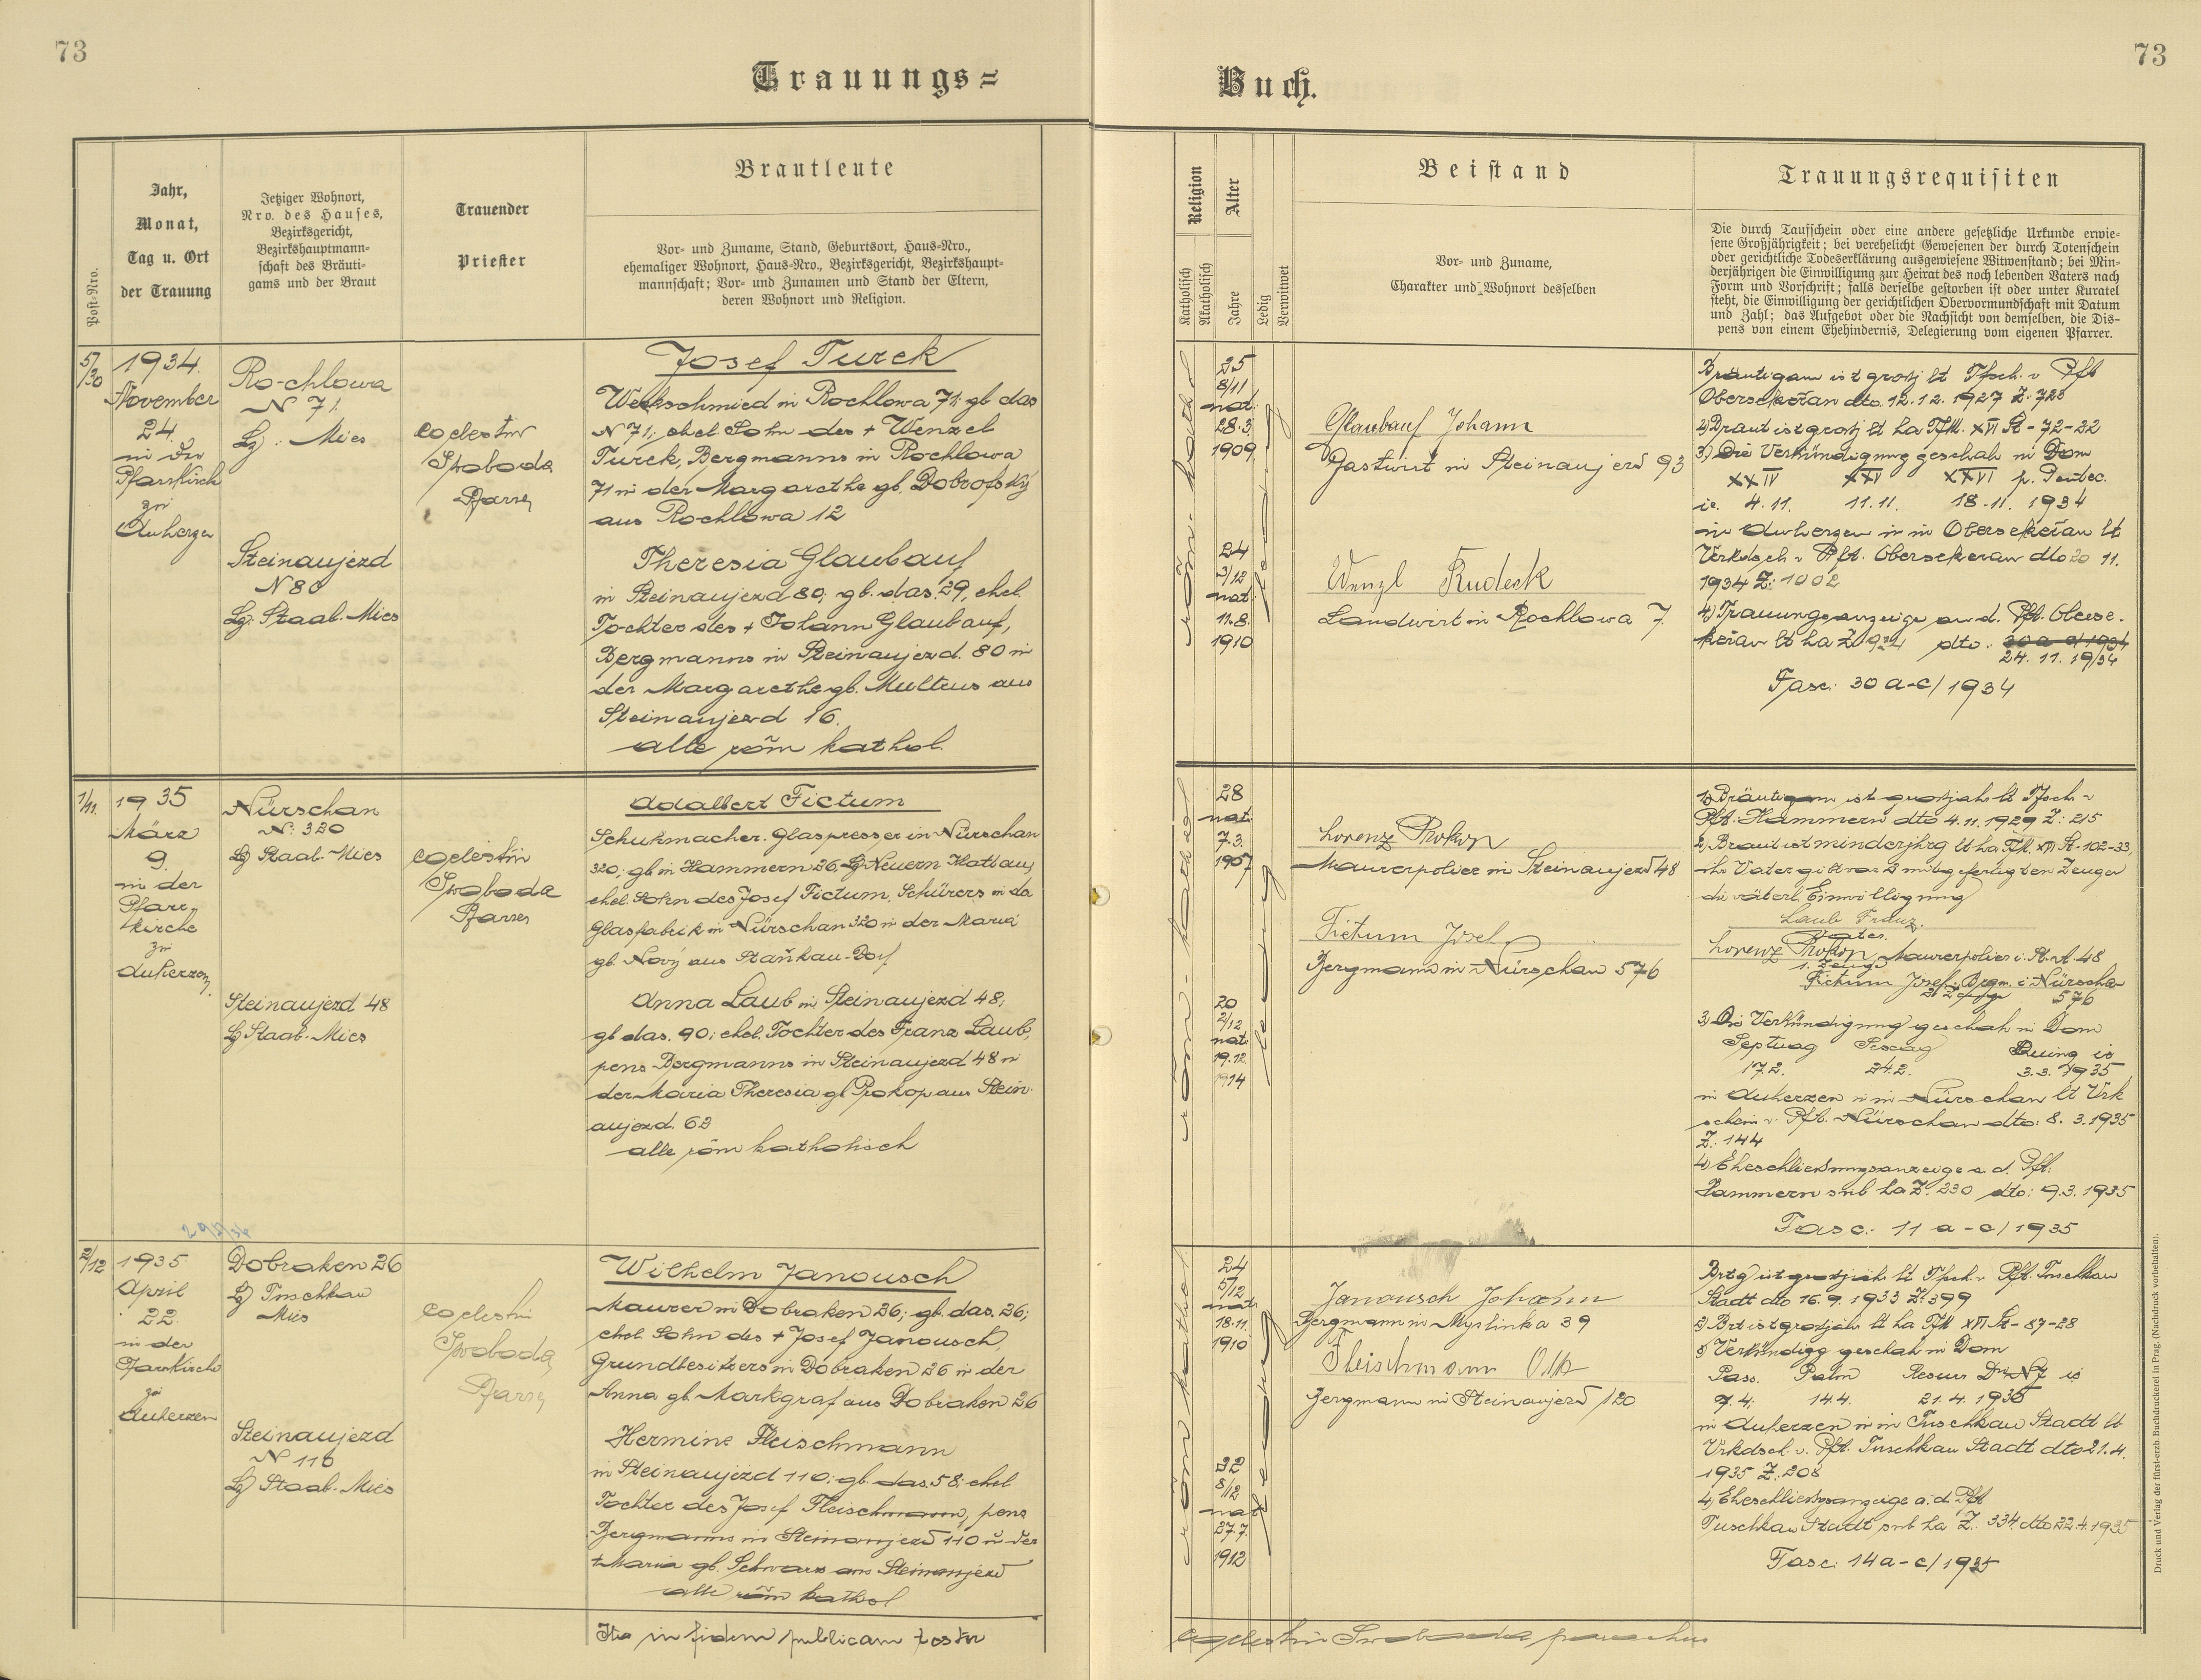 73
73
Trauungs=
Buch.
Post-Nro.
Jahr,
Monat,
Tag u. Ort
der Trauung
Jetziger Wohnort,
Nro. des Hauses,
Bezirksgericht,
Bezirkshauptmann-
schaft des Bräuti-
gams und der Braut
Trauender
Priester
Brautleute
Vor- und Zuname, Stand, Geburtsort, Haus-Nro.,
ehemaliger Wohnort, Haus-Nro., Bezirksgericht, Bezirkshaupt-
mannschaft; Vor- und Zunamen und Stand der Eltern,
deren Wohnort und Religion.
Religion
Katholisch
Akatholisch
Alter
Jahre
Ledig
Verwitwet
Beistand
Vor- und Zuname,
Charakter und Wohnort desselben
Trauungsrequisiten
Die durch Taufschein oder eine andere gesetzliche Urkunde erwie-
sene Großjährigkeit; bei verehelicht Gewesenen der durch Totenschein
oder gerichtliche Todeserklärung ausgewiesene Witwenstand; bei Min-
derjährigen die Einwilligung zur Heirat des noch lebenden Vaters nach
Form und Vorschrift; falls derselbe gestorben ist oder unter Kuratel
steht, die Einwilligung der gerichtlichen Obervormundschaft mit Datum
und Zahl; das Aufgebot oder die Nachsicht von demselben, die Dis-
pens von einem Ehehindernis, Delegierung vom eigenen Pfarrer.
5/30
1934.
November
24.
in der
Pfarrkirch
zu
Auherzen
Rochlowa
N 71.
Lg: Mies
Steinaujezd
N 80
Lg: Staab-Mies
Coelestin
Swoboda
Pfarrer
Josef Turek
Werkschmied in Rochlowa 71; gb das
N 71; ehel. Sohn des + Wenzel
Turek, Bergmanns in Rochlowa
71 u der Margarethe gb. Dobrofsky
aus Rochlowa 12
Theresia Glaubauf
in Steinaujezd 80; gb. das. 29, ehel.
Tochter des + Johann Glaubauf,
Bergmanns in Steinaujezd. 80 u
der Margarethe gb. Multrus aus
Steinaujezd 16.
alle röm kathol.
röm. kathol
25
8/11
nat.
28.3.
1909
24
3/12
nat.
11.8.
1910
ledig
Glaubauf Johann
Gastwirt in Steinaujezd 93
Wenzl Rudeck
Landwirt in Rochlowa 7.
Bräutigam ist grosj lt Tfsch. v Pft
Obersekeřan dto. 12.12.1927 Z. 728
2) Braut ist grosj lt ha Tfk. XVI St-72-22
3.) Die Verkündigung geschah in Dom
XXIV XXV XXVI p. Pentec.
ie. 4.11. 11.11. 18.11. 1934
in Auherzen u in Obersekeřan lt
Verkdsch. v Pft. Obersekeran dto 20 11.
1934 Z: 1002
4) Trauungsanzeige an d. Pft. Oberse-
keřan lt ha Z. 924 dto. 30 a-c/1934
24. 11. 19/34
Fasc: 30 a-c/1934
1/11.
1935
März
9.
in der
Pfarr-
kirche
zu
Auherzen
Nürschan
N: 320
Lg Staab-Mies
Steinaujezd 48
Lg Staab-Mies
Coelestin
Swoboda
Pfarrer
Adalbert Fictum
Schuhmacher. Glaspresser in Nürschan
320; gb in Hammern 26, Lg Neuern Klattau,
ehel. Sohn des Josef Fictum, Schürers in da
Glasfabrik in Nürschan 320 u der Maria
gb. Nový aus Staňkau-Dorf
Anna Laub in Steinaujezd 48;
gb das. 90; ehel. Tochter des Franz Laub,
pens Bergmanns in Steinaujezd 48 u
der Maria Theresia gb Prokop aus Stein-
aujezd. 62
alle röm katholisch
röm. kathol
28
nat.
7.3.
1907
20
2/12
nat.
19.12
1914
ledig
Lorenz Prokop
Maurerpolier in Steinaujezd 48
Fictum Josef
Bergmann in Nürschan 576
1) Bräutigam ist grosjähr lt Tfsch v
Pft. Hammern dto 4.11.1929 Z: 215
2) Braut ist minderjhrg lt ha Tfk. XVI St-102-33,
ihr Vater gibt vor 2 mitgefertigten Zeugen
die väterl. Einwilligung
Laub Franz.
Vater.
Lorenz Prokop Maurerpolier i. St. A. 48
1. Zeuge
Fictum Josef Bergm. i Nürschan
2. Zeuge 576
3.) Die Verkündigung geschah in Dom
Septuag Sexag Quing ie
17.2. 24.2. 3.3. 1935
in Auherzen u in Nürschan lt Verk
schein v. Pft. Nürschan dto: 8. 3. 1935
Z.: 144
4) Eheschliessungsanzeige a. d. Pft.
Hammern sub ha Z. 230 dto: 9.3.1935
Fasc: 11 a-c/1935
2/12
1935
April
22.
in der
Pfarrkirche
zu
Auherzen
Dobraken 26
Lg Tuschkau
Mies
Steinaujezd
N 110
Lg Staab-Mies
Coelestin
Swoboda,
Pfarrer
Wilhelm Janousch
Maurer in Dobraken 26; gb. das. 26;
ehel. Sohn des + Josef Janousch,
Grundbesitzers in Dobraken 26 u der
Anna gb. Markgraf aus Dobraken 26
Hermine Fleischmann
in Steinaujezd 110; gb das. 58; ehel
Tochter des Josef Fleischmann, pens
Bergmanns in Steinaujezd 110 u der
+ Maria gb. Schwarz aus Steinaujezd
alle röm kathol
röm kathol
24
5/12
nat.
18.11
1910
22
8/12
nat
27.7.
1912
ledig
Janousch Johann
Bergmann in Myslinka 39
Fleischmann Otto
Bergmann in Steinaujezd 120
Brtg ist grosjähr lt Tfsch. v Pft. Tuschkau
Stadt dto 16.9.1933 Z. 399
2) Brt ist grosjähr lt ha Tfk XVI St-87-28
3 Verkündigg geschah in Dom
Pass. Palm Resurr DNJ ie
7.4. 14.4. 21.4.1935
in Auherzen u in Tuschkau Stadt lt
Verkdsch. v. Pft. Tuschkau Stadt dto 21.4.
1935 Z. 208
4) Eheschliessgsanzeige a. d. Pft
Tuschkau Stadt sub ha Z.: 334 dto 22.4.1935
Fasc: 14 a-c/1935
Ita in fidem publicam testor
Coelestin Swoboda parochus
Druck und Verlag der fürst-erzb. Buchdruckerei in Prag. (Nachdruck vorbehalten).